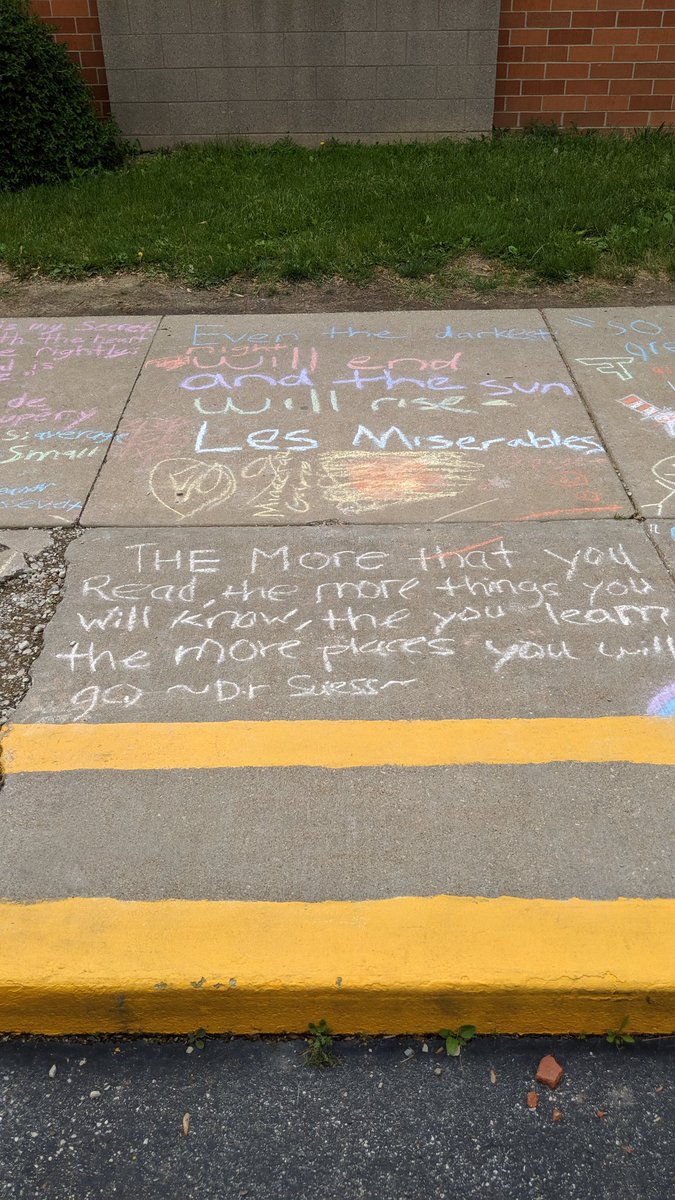 my Secret
the heart
rightly;
is
de
average
Small
Even the darkest
night
will end
and the sun
will rise -
Les Miserables
"SO
THE More that you
Read, the more things you
will know, the you learn
the more places you will
go ~Dr Suess~